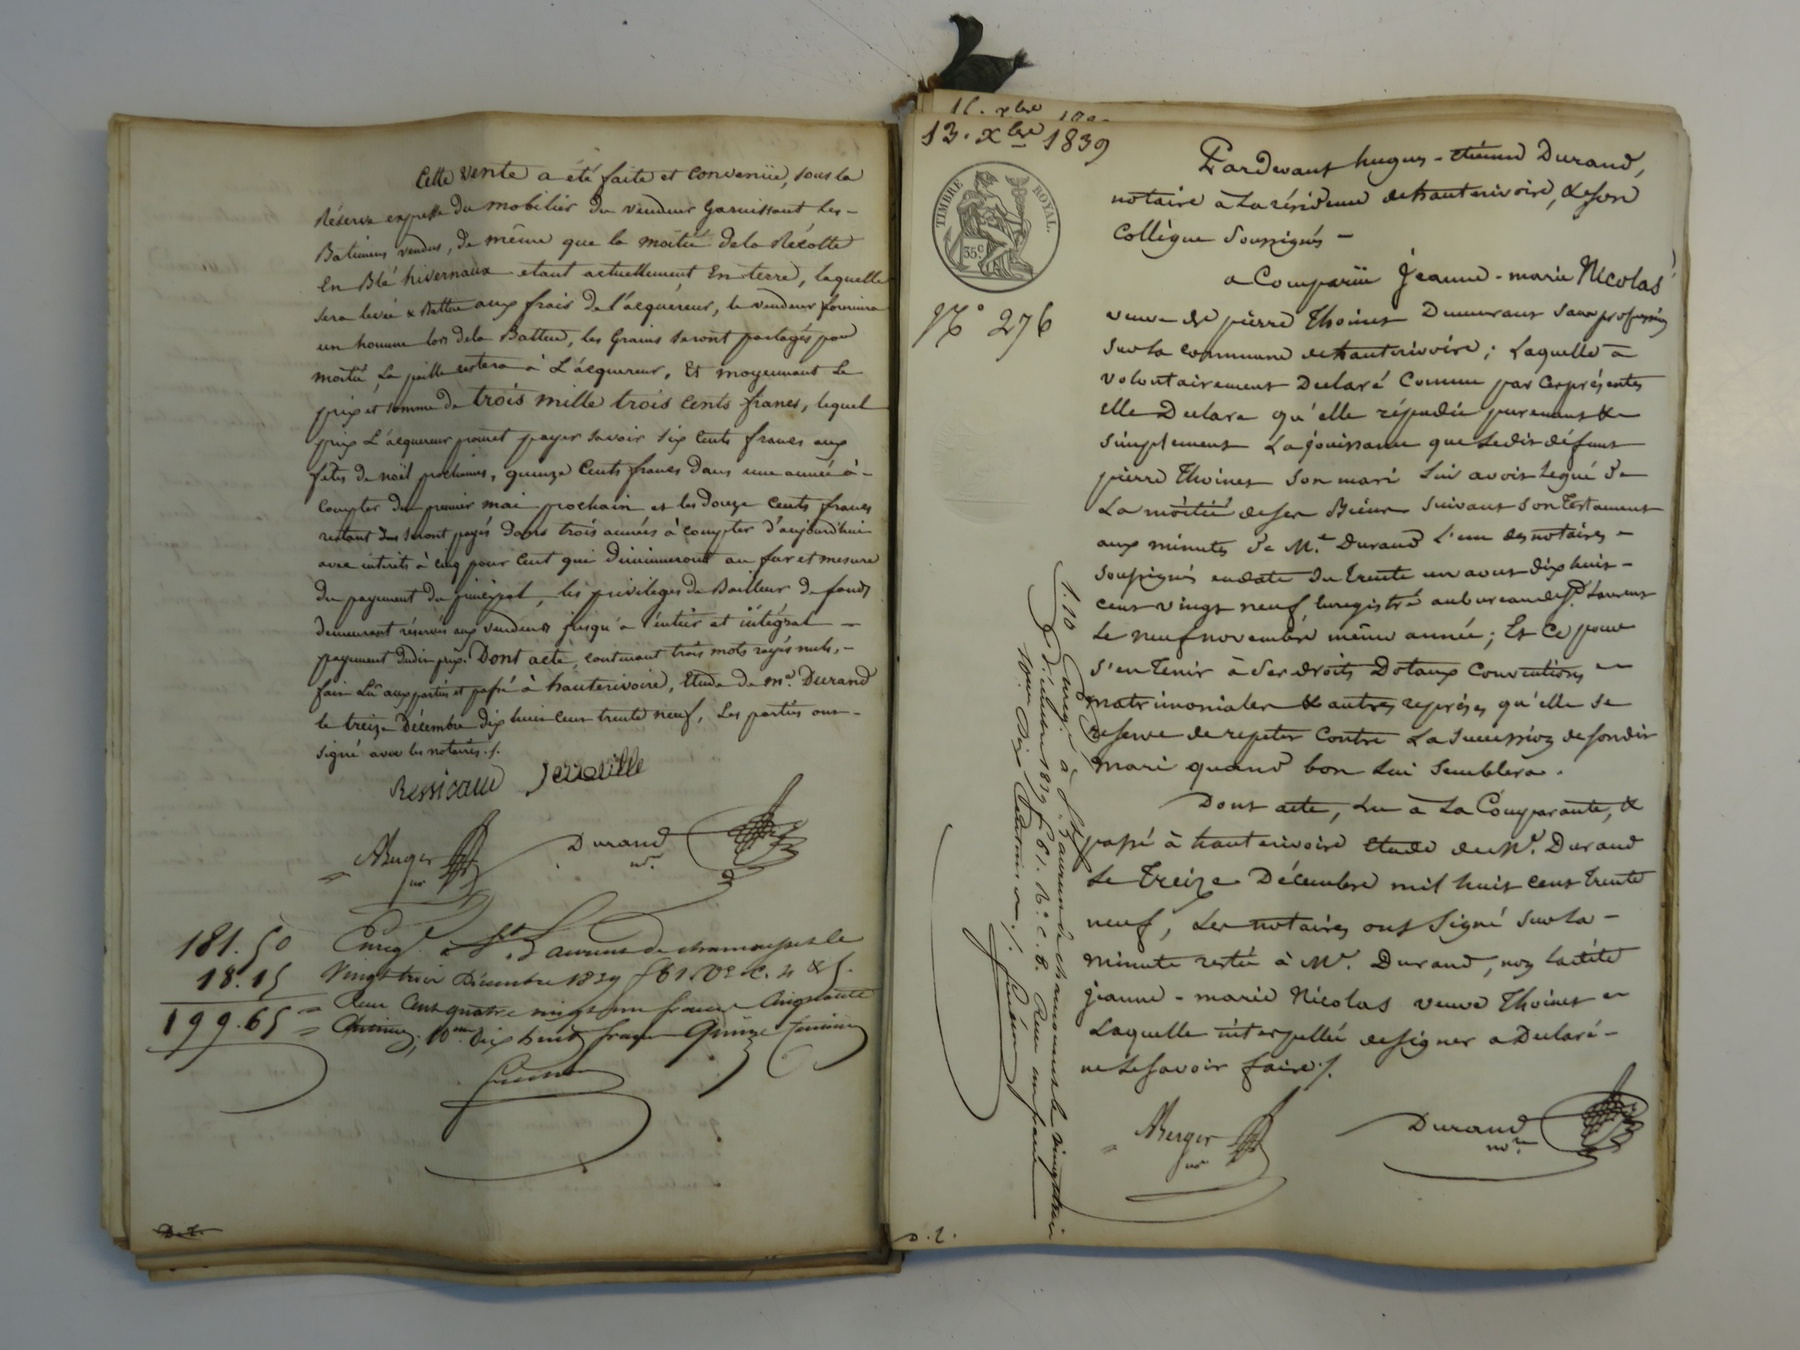 Cette vente a été faite et convenüe, sous la
Réserve expresse du mobilier du vendeur Garnissant les -
Batimens vendus, de même que la moitié de la Récolte
En Blé hivernaux etant actuellement En terre, laquelle
sera levée & Battue aux frais de l'acquéreur, le vendeur fournira
un homme lors dela Batture, les Grains seront partagés par
moitié, La paille restera à L'acquereur. Et moyennant Le
prix et somme de trois mille trois cents francs, lequel
prix L'acquereur promet payer savoir six cents francs aux
fêtes de noël prochaines, quinze Cents francs dans une année à -
Compter du premier mai prochain et les douze cents francs
restant dus seront payés dans trois années à compter d'aujourd'hui
avec intérêts à cinq pour cent qui diminueront au fur et mesure
du payement du principal, les privilèges de Bailleur de fonds
demeurant réservés aux vendeurs jusqu'a l'entier et intégral -
payement dudit prix. Dont acte, contenant trois mots rayés nuls, -
fait Lû aux parties et passé à hauterivoire, Etude de me. Durand
le treize Décembre dix huit cent trente neuf, Les parties ont -
signé avec les notaires ./.
Ressicaud
ABerger
nre
Durand
nre
181.50
18.15
199.65
Enregé à St Laurent de chamousset le
Vingt trois Décembre 1839 f 61. Vo C. 4 & 5.
Reçu Cent quatre vingt un francs Cinquante
Centimes, 10me dix huit francs Quinze Centimes
D. L.
16. xbre
13. xbre 1839
TIMBRE ROYAL.
35c
No 276
Pardevant hugues - etienne Durand,
notaire à La résidence de hauterivoire, & son
Collègue Soussignés -
a Comparüe Jeanne - marie Nicolas
veuve de pierre Thoinet Demeurant sans profession
sur la commune de hauterivoire ; Laquelle a
volontairement Declaré Comme par Ces présentes
elle Declare qu'elle répudie purement &
simplement La jouissance que Ledit défunt
pierre Thoinet son mari Lui avoit Legué de
La moitié de ses Biens suivant son Testament
aux minutes de Me. Durand L'un des notaires -
soussignés en date du trente un aout dix huit -
cent vingt neuf, Enregistré au bureau de St. Laurent
Le neuf novembre même année ; Et Ce pour
s'en Tenir à Ses droits Dotaux Conventions -
matrimoniales & autres reprises qu'elle se
reserve de repeter Contre La Succession de son dit
mari quand bon Lui semblera .
Dont acte, Lu à La Comparante, &
passé à hauterivoire etude de Me. Durand
Le Treize Décembre mil huit cent trente
neuf, Les notaires ont signé sur la -
minute restée à Me. Durand, non ladite
jeanne - marie Nicolas veuve Thoinet -
Laquelle interpellée de signer a Declaré -
ne Le savoir faire ./.
ABerger
nre
Durand
nre
1.10 Enregé à St. Laurent de chamousset le vingt trois
Décembre 1839 f. 61. Vo. C. 8. Reçu un franc
10me dix Centimes ./.
D. L.